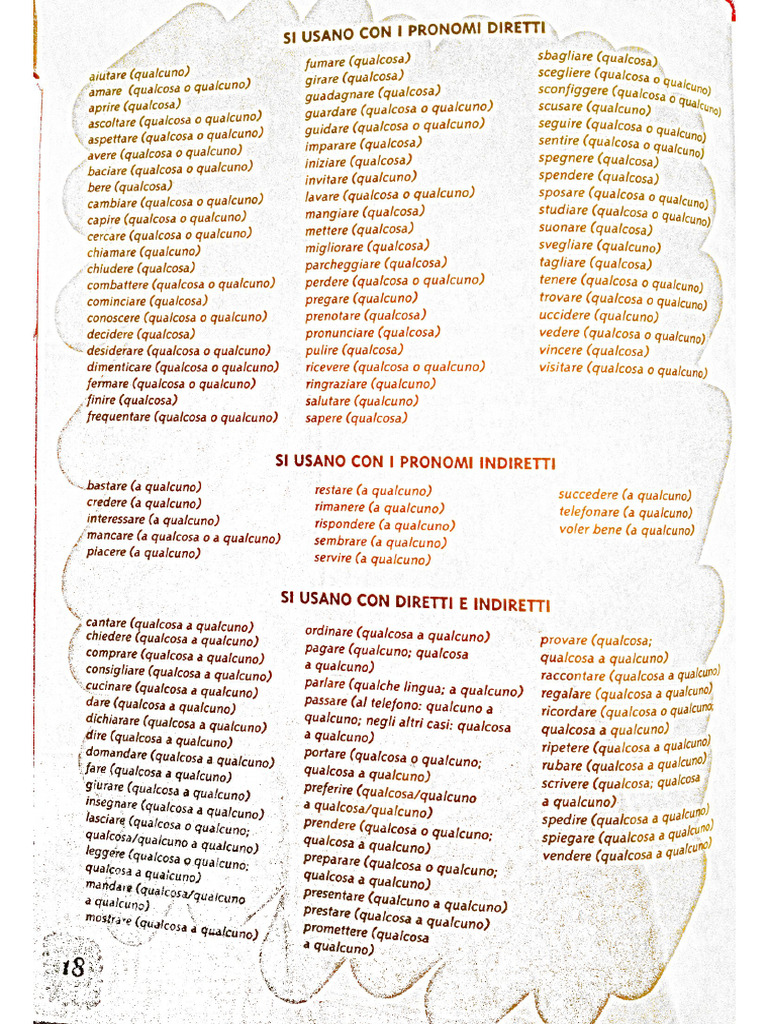 SI USANO CON I PRONOMI DIRETTI
aiutare (qualcuno)
amare (qualcosa o qualcuno)
aprire (qualcosa)
ascoltare (qualcosa o qualcuno)
aspettare (qualcosa o qualcuno)
avere (qualcosa o qualcuno)
baciare (qualcosa o qualcuno)
bere (qualcosa)
cambiare (qualcosa o qualcuno)
capire (qualcosa o qualcuno)
cercare (qualcosa o qualcuno)
chiamare (qualcuno)
chiudere (qualcosa)
combattere (qualcosa o qualcuno)
cominciare (qualcosa)
conoscere (qualcosa o qualcuno)
decidere (qualcosa)
desiderare (qualcosa o qualcuno)
dimenticare (qualcosa o qualcuno)
fermare (qualcosa o qualcuno)
finire (qualcosa)
frequentare (qualcosa o qualcuno)
fumare (qualcosa)
girare (qualcosa)
guadagnare (qualcosa)
guardare (qualcosa o qualcuno)
guidare (qualcosa o qualcuno)
imparare (qualcosa)
iniziare (qualcosa)
invitare (qualcuno)
lavare (qualcosa o qualcuno)
mangiare (qualcosa)
mettere (qualcosa)
migliorare (qualcosa)
parcheggiare (qualcosa)
perdere (qualcosa o qualcuno)
pregare (qualcuno)
prenotare (qualcosa)
pronunciare (qualcosa)
pulire (qualcosa)
ricevere (qualcosa o qualcuno)
ringraziare (qualcuno)
salutare (qualcuno)
sapere (qualcosa)
sbagliare (qualcosa)
scegliere (qualcosa o qualcuno)
sconfiggere (qualcosa o qualcuno)
scusare (qualcuno)
seguire (qualcosa o qualcuno)
sentire (qualcosa o qualcuno)
spegnere (qualcosa)
spendere (qualcosa)
sposare (qualcosa o qualcuno)
studiare (qualcosa o qualcuno)
suonare (qualcosa)
svegliare (qualcuno)
tagliare (qualcosa)
tenere (qualcosa o qualcuno)
trovare (qualcosa o qualcuno)
uccidere (qualcuno)
vedere (qualcosa o qualcuno)
vincere (qualcosa)
visitare (qualcosa o qualcuno)
SI USANO CON I PRONOMI INDIRETTI
bastare (a qualcuno)
credere (a qualcuno)
interessare (a qualcuno)
mancare (a qualcosa o a qualcuno)
piacere (a qualcuno)
restare (a qualcuno)
rimanere (a qualcuno)
rispondere (a qualcuno)
sembrare (a qualcuno)
servire (a qualcuno)
succedere (a qualcuno)
telefonare (a qualcuno)
voler bene (a qualcuno)
SI USANO CON DIRETTI E INDIRETTI
cantare (qualcosa a qualcuno)
chiedere (qualcosa a qualcuno)
comprare (qualcosa a qualcuno)
consigliare (qualcosa a qualcuno)
cucinare (qualcosa a qualcuno)
dare (qualcosa a qualcuno)
dichiarare (qualcosa a qualcuno)
dire (qualcosa a qualcuno)
domandare (qualcosa a qualcuno)
fare (qualcosa a qualcuno)
giurare (qualcosa a qualcuno)
insegnare (qualcosa a qualcuno)
lasciare (qualcosa o qualcuno;
qualcosa/qualcuno a qualcuno)
leggere (qualcosa o qualcuno;
qualcosa a qualcuno)
mandare (qualcosa/qualcuno
a qualcuno)
mostrare (qualcosa a qualcuno)
ordinare (qualcosa a qualcuno)
pagare (qualcuno; qualcosa
a qualcuno)
parlare (qualche lingua; a qualcuno)
passare (al telefono: qualcuno a
qualcuno; negli altri casi: qualcosa
a qualcuno)
portare (qualcosa o qualcuno;
qualcosa a qualcuno)
preferire (qualcosa/qualcuno
a qualcosa/qualcuno)
prendere (qualcosa o qualcuno;
qualcosa a qualcuno)
preparare (qualcosa o qualcuno;
qualcosa a qualcuno)
presentare (qualcuno a qualcuno)
prestare (qualcosa a qualcuno)
promettere (qualcosa
a qualcuno)
provare (qualcosa;
qualcosa a qualcuno)
raccontare (qualcosa a qualcuno)
regalare (qualcosa a qualcuno)
ricordare (qualcosa o qualcuno;
qualcosa a qualcuno)
ripetere (qualcosa a qualcuno)
rubare (qualcosa a qualcuno)
scrivere (qualcosa; qualcosa
a qualcuno)
spedire (qualcosa a qualcuno)
spiegare (qualcosa a qualcuno)
vendere (qualcosa a qualcuno)
18